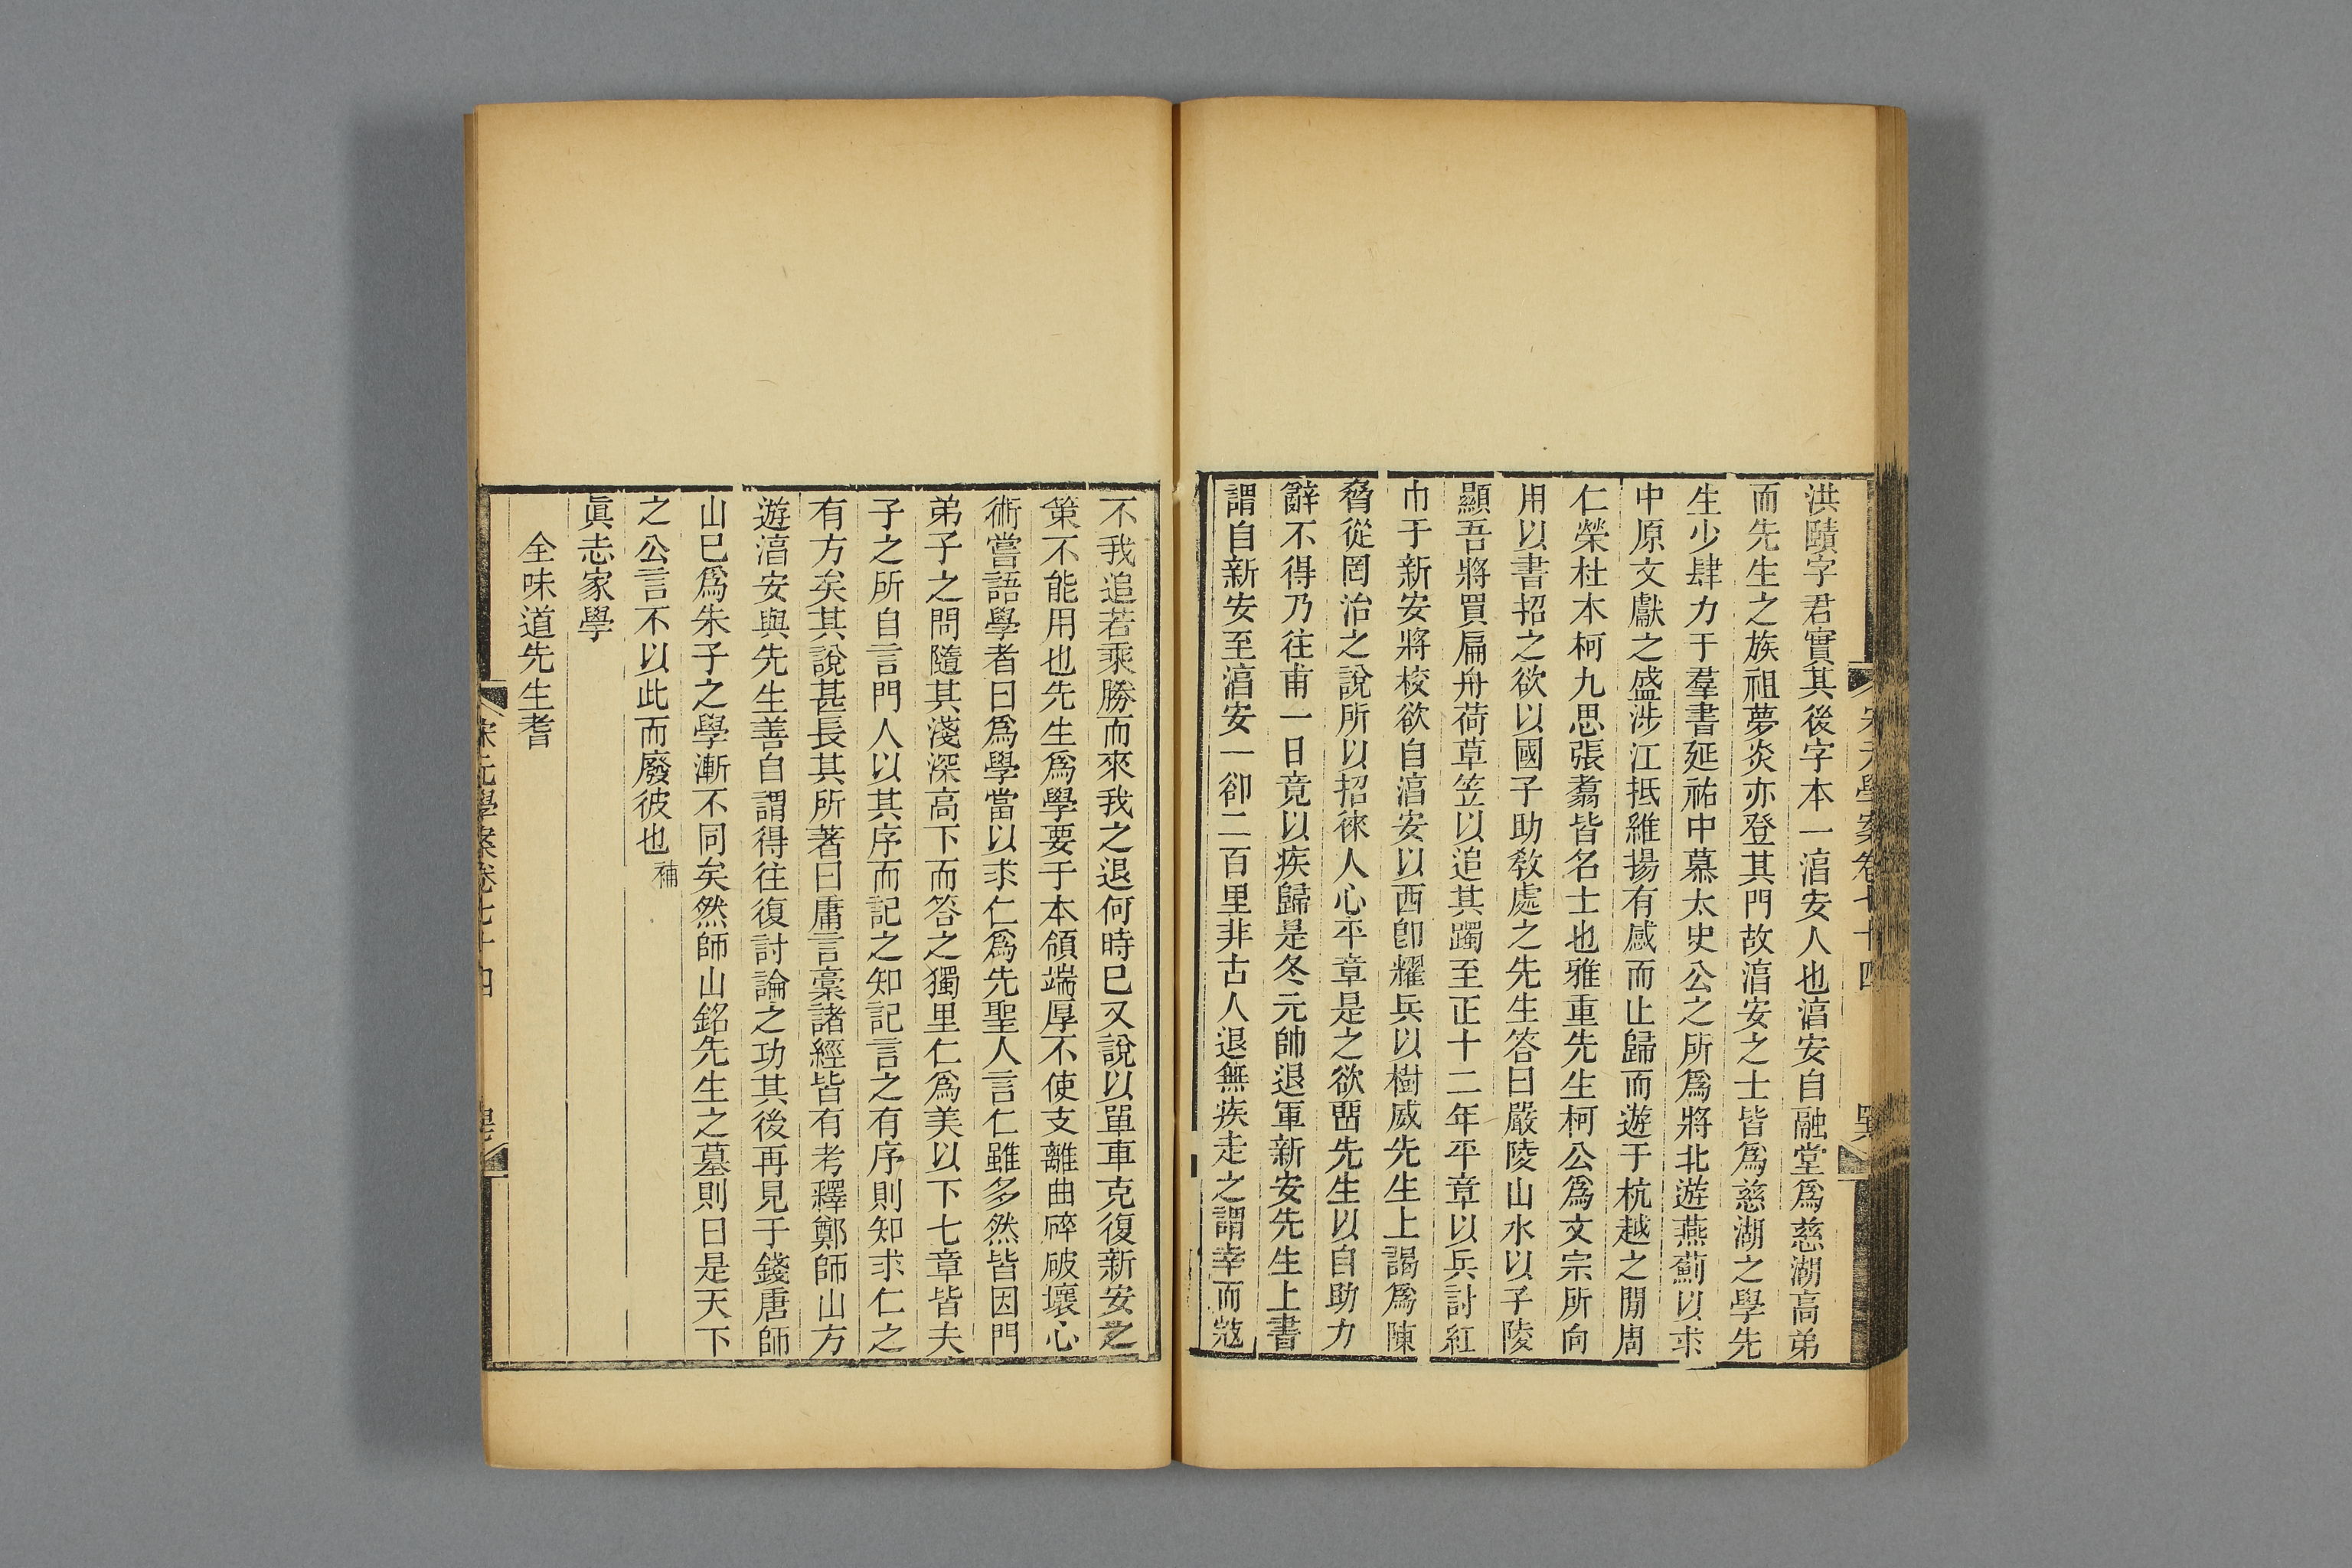 洪賾字君實其後字本一湻安人也湻安自融堂爲慈湖高弟
而先生之族祖夢炎亦登其門故湻安之士皆爲慈湖之學先
生少肆力于羣書延祐中慕太史公之所爲將北遊燕薊以求
中原文獻之盛涉江抵維揚有感而止歸而遊于杭越之閒周
仁榮杜本柯九思張翥皆名士也雅重先生柯公爲文宗所向
用以書招之欲以國子助敎處之先生答曰嚴陵山水以子陵
顯吾將買扁舟荷草笠以追其躅至正十二年平章以兵討紅
巾于新安將校欲自湻安以西卽耀兵以樹威先生上謁爲陳
脅從罔治之說所以招徠人心平章是之欲畱先生以自助力
辭不得乃往甫一日竟以疾歸是冬元帥退軍新安先生上書
謂自新安至湻安一卻二百里非古人退無疾走之謂幸而寇
不我追若乘勝而來我之退何時已又說以單車克復新安之
策不能用也先生爲學要于本領端厚不使支離曲碎破壞心
術嘗語學者曰爲學當以求仁爲先聖人言仁雖多然皆因門
弟子之問隨其淺深高下而答之獨里仁爲美以下七章皆夫
子之所自言門人以其序而記之知記言之有序則知求仁之
有方矣其說甚長其所著曰庸言稾諸經皆有考釋鄭師山方
遊湻安與先生善自謂得往復討論之功其後再見于錢唐師
山已爲朱子之學漸不同矣然師山銘先生之墓則曰是天下
之公言不以此而廢彼也補
眞志家學
全味道先生耆
宋元學案卷七十四